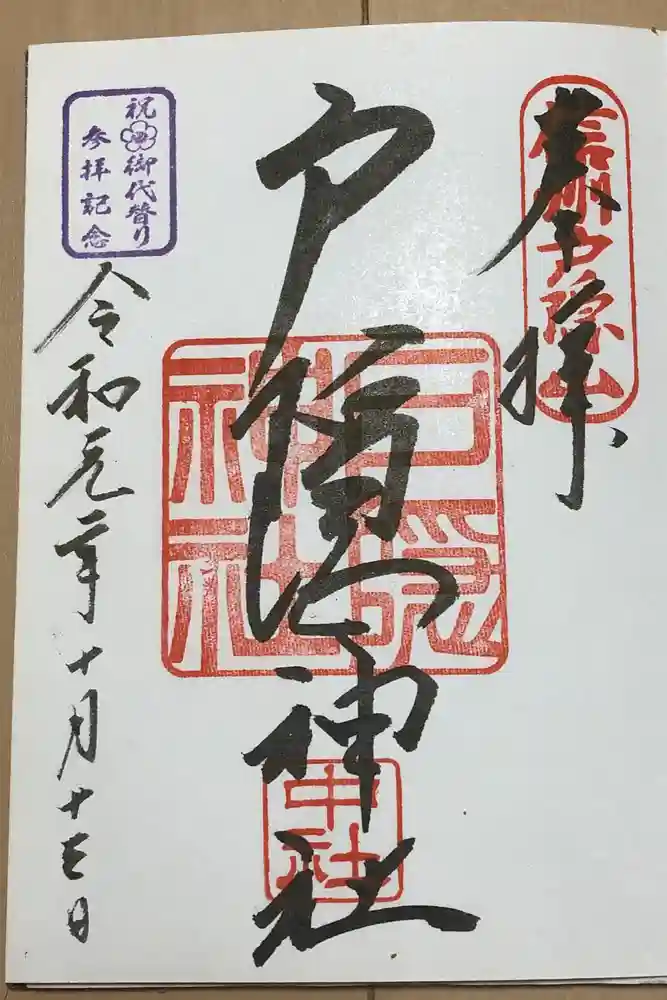 奉拝
信州戸隠山
戸隠神社
戸隠
神社
中社
祝御代替り
参拝記念
令和元年十月十三日